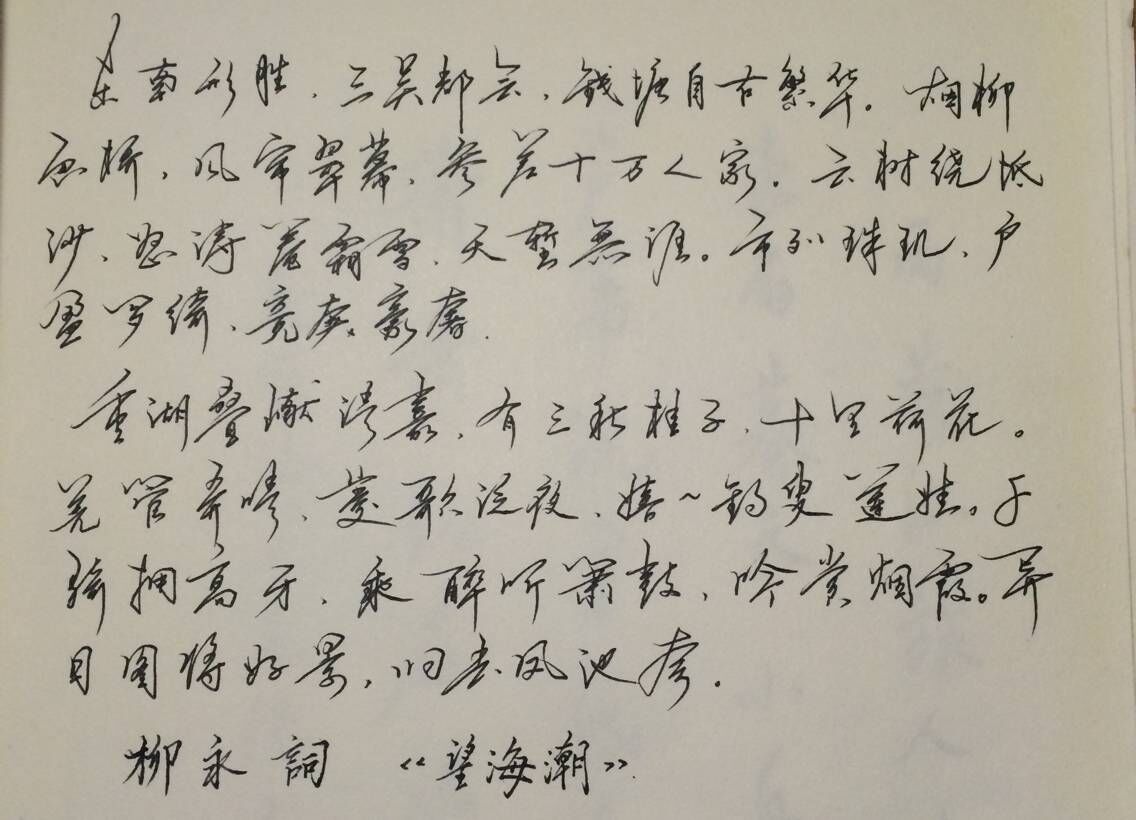 东南形胜，三吴都会，钱塘自古繁华。烟柳
画桥，风帘翠幕，参差十万人家。云树绕堤
沙，怒涛卷霜雪，天堑无涯。市列珠玑，户
盈罗绮、竞奢。豪奢.
重湖叠巘清嘉，有三秋桂子，十里荷花。
羌管弄晴，菱歌泛夜，嬉~钓叟莲娃。千
骑拥高牙，乘醉听箫鼓，吟赏烟霞。异
日图将好景，归去凤池夸.
柳永詞 《望海潮》